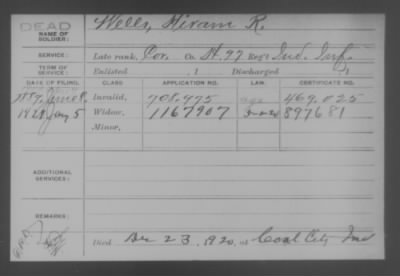 DEAD
NAME OF SOLDIER: Wells, Hiram R.
SERVICE: Late rank, Cor. Co. H. 97 Reg't Ind. Inf.
TERM OF SERVICE: Enlisted , 1 Discharged , 1
DATE OF FILING. CLASS APPLICATION NO. LAW. CERTIFICATE NO.
Invalid, 708.975 469.025
1921 Jany 5 Widow, 1167907 897681
Minor,
ADDITIONAL SERVICES:
REMARKS:
Died Dec 23, 1920, at Coal City Ind